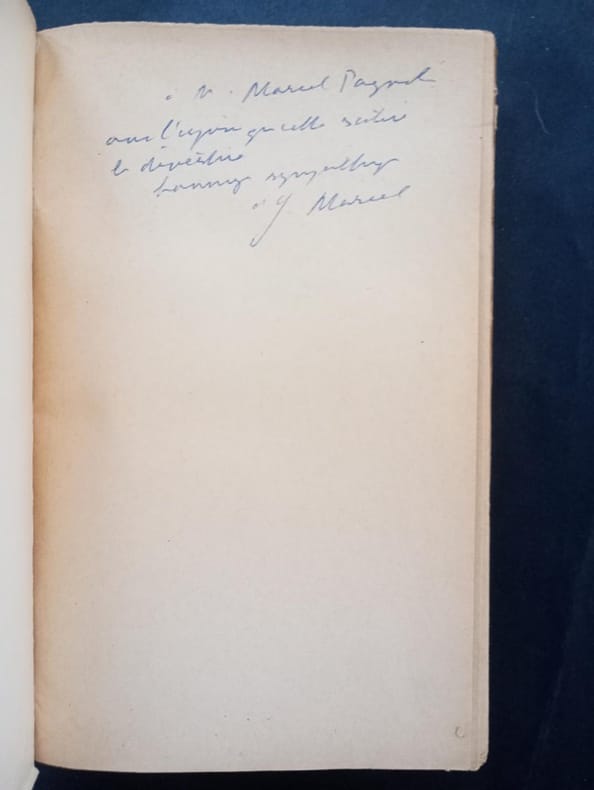 à M. Marcel Pagnol
avec l'espoir que cette satire
le divertira
hommage sympathique
G Marcel